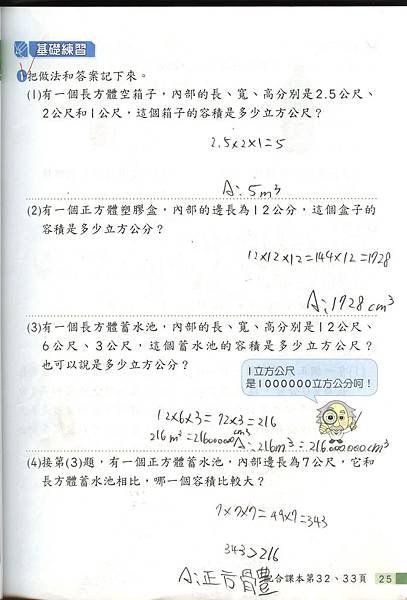 基礎練習
1 把做法和答案記下來。
(1)有一個長方體空箱子，內部的長、寬、高分別是2.5公尺、
2公尺和1公尺，這個箱子的容積是多少立方公尺？
2.5×2×1=5
A:5m³
(2)有一個正方體塑膠盒，內部的邊長為12公分，這個盒子的
容積是多少立方公分？
12×12×12=144×12=1728
A:1728cm³
(3)有一個長方體蓄水池，內部的長、寬、高分別是12公尺、
6公尺、3公尺，這個蓄水池的容積是多少立方公尺？
也可以說是多少立方公分？
1立方公尺
是1000000立方公分呵！
12×6×3=72×3=216
216m³=216000000cm³
A:216m³=216000000cm³
(4)接第(3)題，有一個正方體蓄水池，內部邊長為7公尺，它和
長方體蓄水池相比，哪一個容積比較大？
7×7×7=49×7=343
343>216
A:正方體
配合課本第32、33頁 25